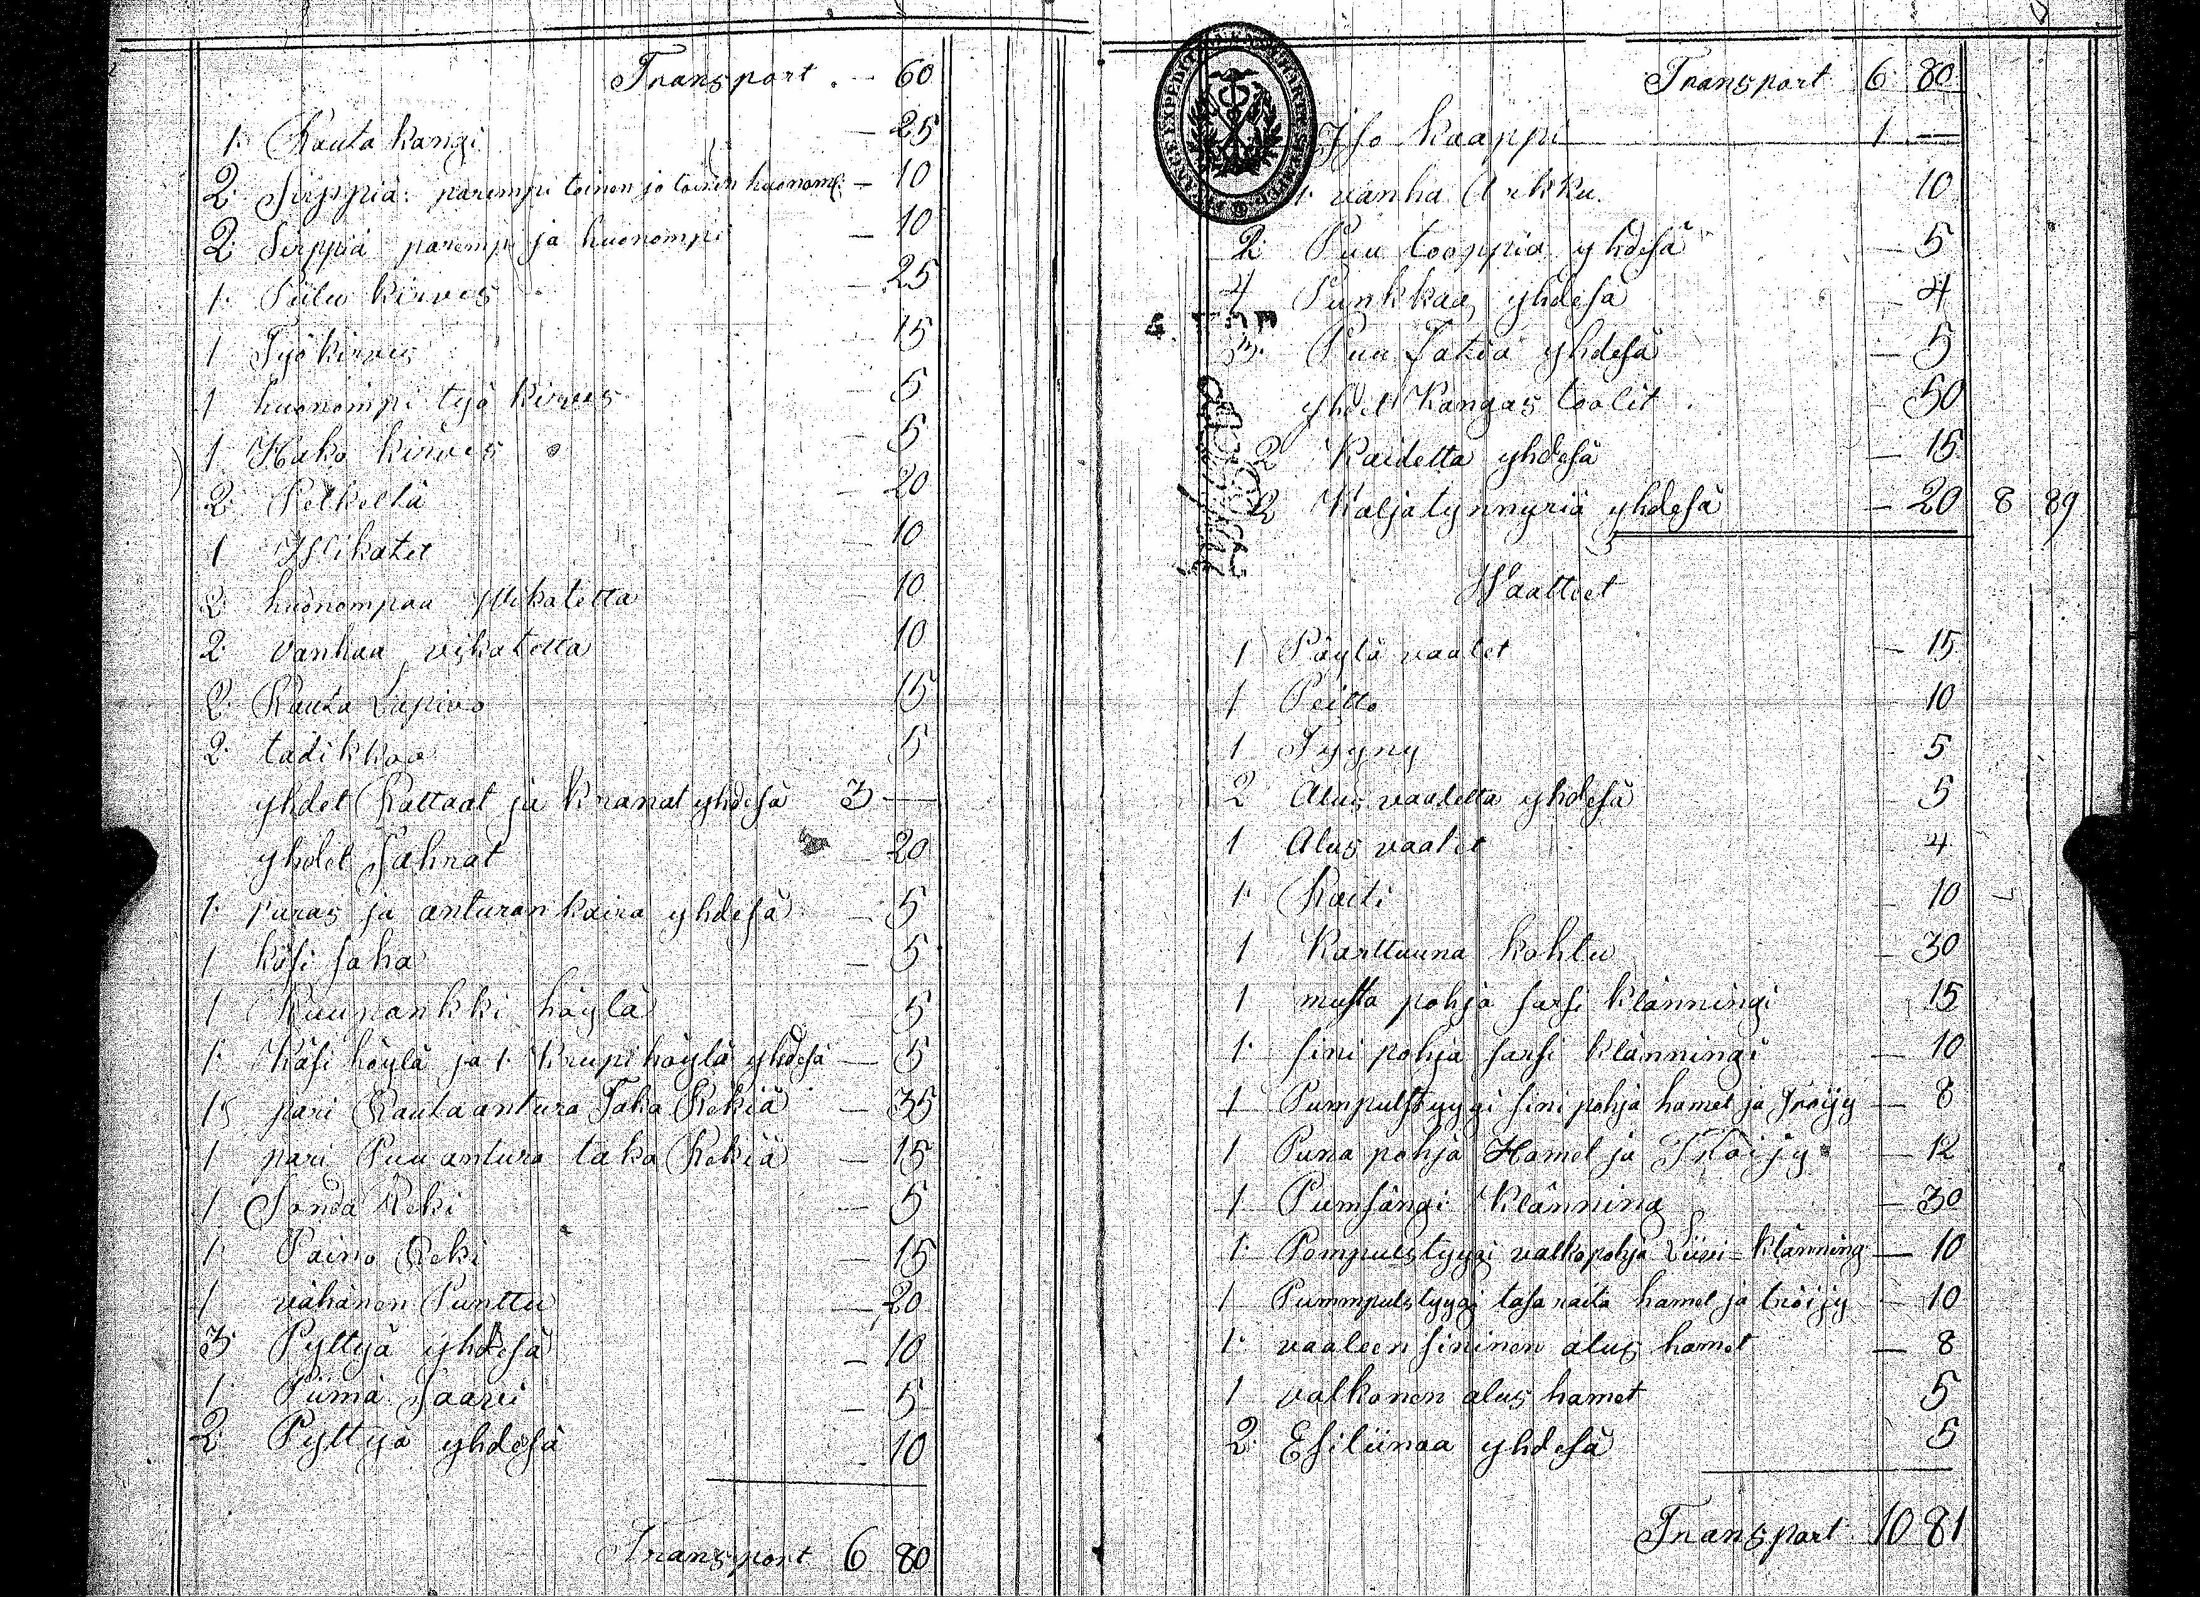 Transport . — 60
1. Rauta kangi — 25
2. Sirppiä: parempi toinen ja toinen huonomp: — 10
2. Sirppiä parempi ja huonompi — 10
1. Piilu kirves — 25
1 Työ kirves — 15
1 huonompi työ kirves — 5
1 Hako kirves — 5
2. Petkeltä — 20
1 Wikatet — 10
2 huonompaa Wikatetta — 10
2. vanhaa vikatetta — 10
2. Rauta Lapivo — 15
2. tadikkoo — 5
yhdet Rattaat ja kranat yhdesä 3 —
yhdet Sahrat — 20
1. puras ja anturan kaira yhdesä — 5
1 käsi saha — 5
1 Ruupankki höylä — 5
1. Käsi höylä ja 1. Krupi höylä yhdesä — 5
1 pari Rauta antura Taka Rekiä — 35
1 pari Puu antura taka Rekiä — 15
1 Sonda Reki — 5
1. Paino Reki — 15
1 vähänen Punttu — 20
3 Pyttyä yhdesä — 10
1. Piimä Saavi — 5
2. Pyttyä yhdesä — 10
Transport 6 80
Transport 6 80
Iso kaappi 1 —
1. vanha Arkku. 10
2 Puu tooppia yhdesä — 5
4 Punkkaa yhdesä — 4
3. Puu Fatia yhdesä — 5
yhdet Kangas toolit — 50
2 Kaidetta yhdesä — 15
2 Kaljatynnyriä yhdesä — 20 8 89
Waatteet
1 Päylä vaatet — 15
1 Peitto — 10
1 Tyyny 5
2 Alus vaadetta yhdesä — 5
1 Alus vaatet 4
1. Raiti — 10
1 Karttuuna kohtu — 30
1 musta pohja sarsi klänningi 15
1. sini pohja sarsi klänningi — 10
1 Pumpulstyygi sini pohja hamet ja Tröijy — 8
1 Puna pohja Hamet ja Tröijy — 12
1 Pumsängi Klänning — 30
1. Pompulstyygi valkopohja Liivi-klänning — 10
1 Pummpulstyygi tasa raita hamet ja tröijy — 10
1. vaaleen sininen alus hamet — 8
1 valkonen alus hamet 5
2. Esiliinaa yhdesä 5
Transport 10 81